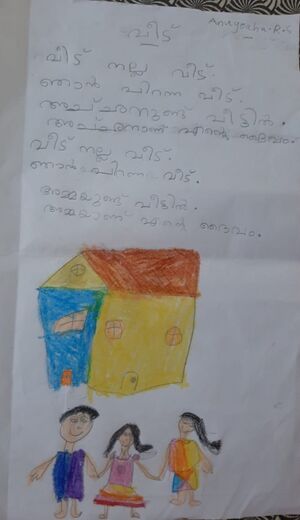 Anugraha.R.S
വീട്
വീട് നല്ല വീട്.
ഞാൻ പിറന്ന വീട്.
അച്ഛനുണ്ട് വീട്ടിൽ.
അച്ഛനാണ് എന്റെ ദൈവം.
വീട് നല്ല വീട്.
ഞാൻ പിറന്ന വീട്.
അമ്മയുണ്ട് വീട്ടിൽ.
അമ്മയാണ് എന്റെ ദൈവം.